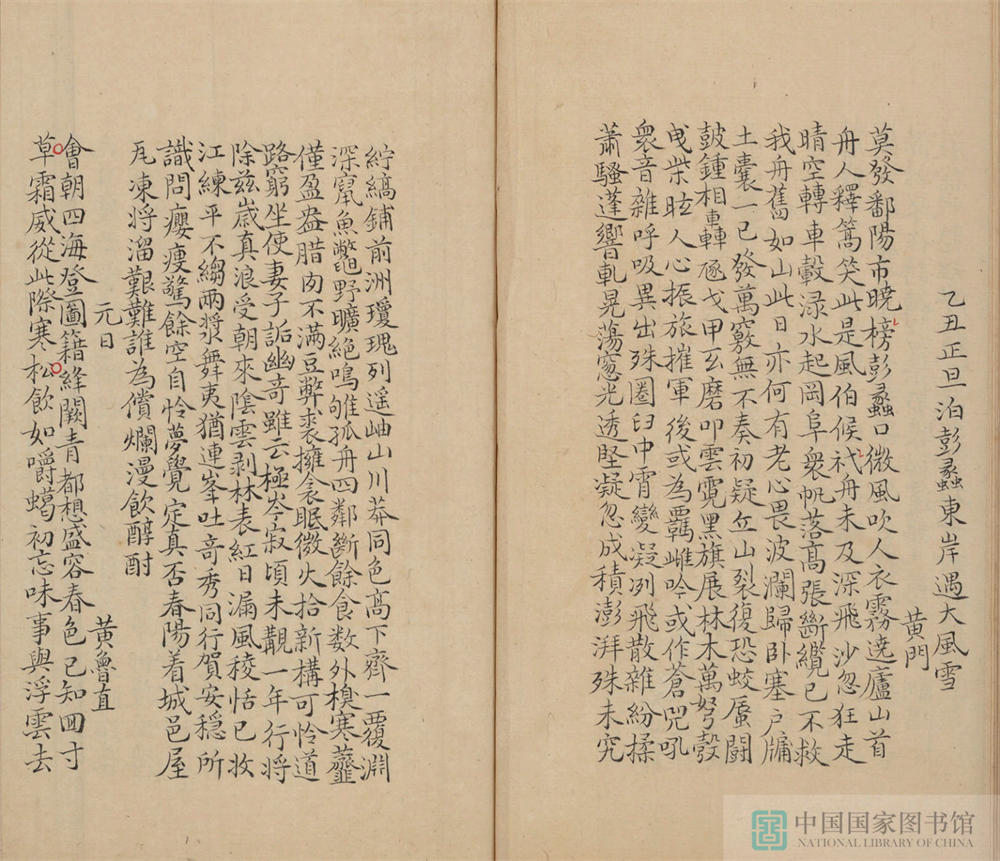 乙丑正旦泊彭蠡東岸遇大風雪
黄門
莫發鄱陽市曉榜彭蠡口微風吹人衣霧遶廬山首
舟人釋篙笑此是風伯候杙舟未及深飛沙忽狂走
晴空轉車轂渌水起岡阜衆帆落高張斷纜已不救
我舟舊如山此日亦何有老心畏波瀾歸卧塞户牖
土囊一已發萬竅無不奏初疑丘山裂復恐蛟蜃鬪
鼓鍾相轟轟戈甲互磨叩雲霓黑旗展林木萬弩彀
曳柴眩人心振旅摧軍後或為羈雌吟或作蒼兕吼
衆音雜呼吸異出殊圈臼中霄變凝冽飛散雜紛揉
蕭騷蓬響乾晃蕩窻光透堅凝忽成積澎湃殊未究
紵縞鋪前洲瓊瑰列遥岫山川莽同色高下齊一覆淵
深竄魚鼈野曠絶鳴雊孤舟四鄰斷餘食数外糗寒虀
僅盈盎腊肉不滿豆弊裘擁衾眠微火拾新構可怜道
路窮坐使妻子詬幽奇雖云極岑寂頃未覯一年行將
除兹嵗真浪受朝來隂雲剥林表紅日漏風稜恬已收
江練平不縐兩槳舞夷猶連峯吐竒秀同行賀安穩所
識問癭瘦驚餘空自怜夢覺定真否春陽着城邑屋
瓦凍將溜艱難誰為償爛漫飲醇酎
元日
黄魯直
會朝四海登圖籍絳闕青都想盛容春色已知回寸
草霜威從此際寒松飲如嚼蠟初忘味事與浮雲去
中国国家图书馆
NATIONAL LIBRARY OF CHINA